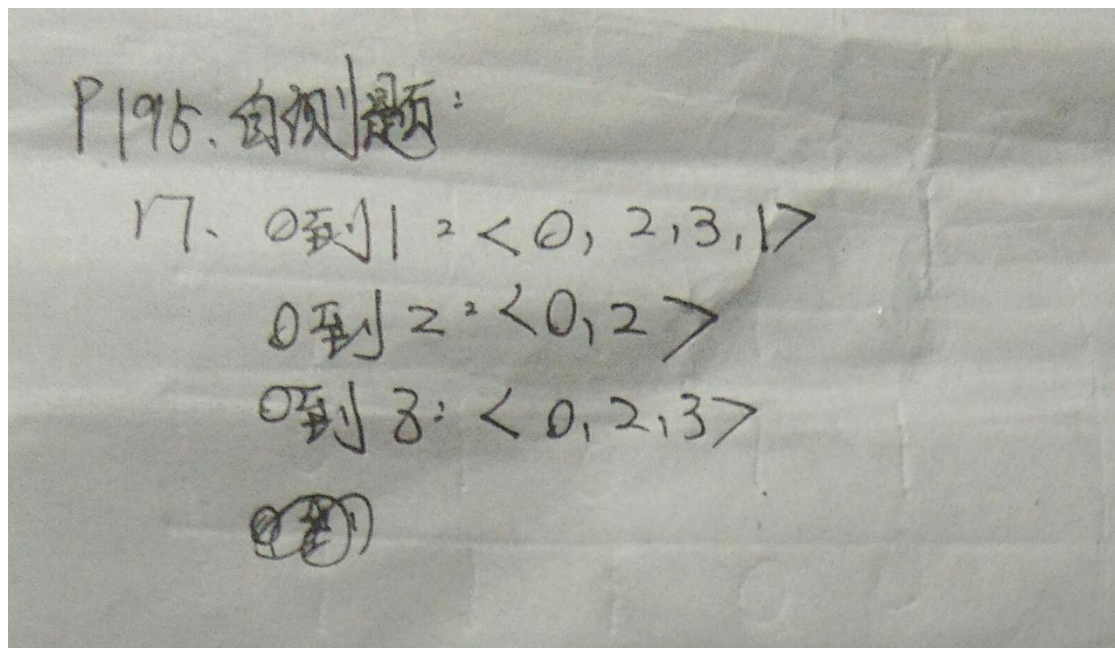 P195、自测题：
17、0到1：<0, 2,3,1>
0到2：<0,2>
0到3：<0,2,3>